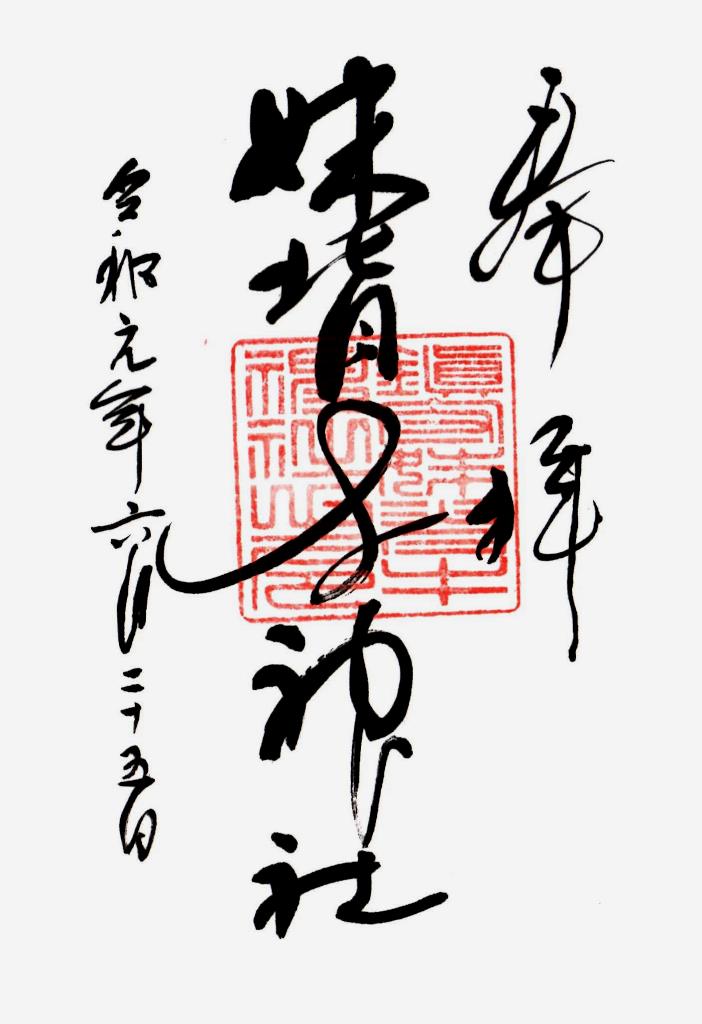 奉拝
妹背牛神社
令和元年六月二十五日